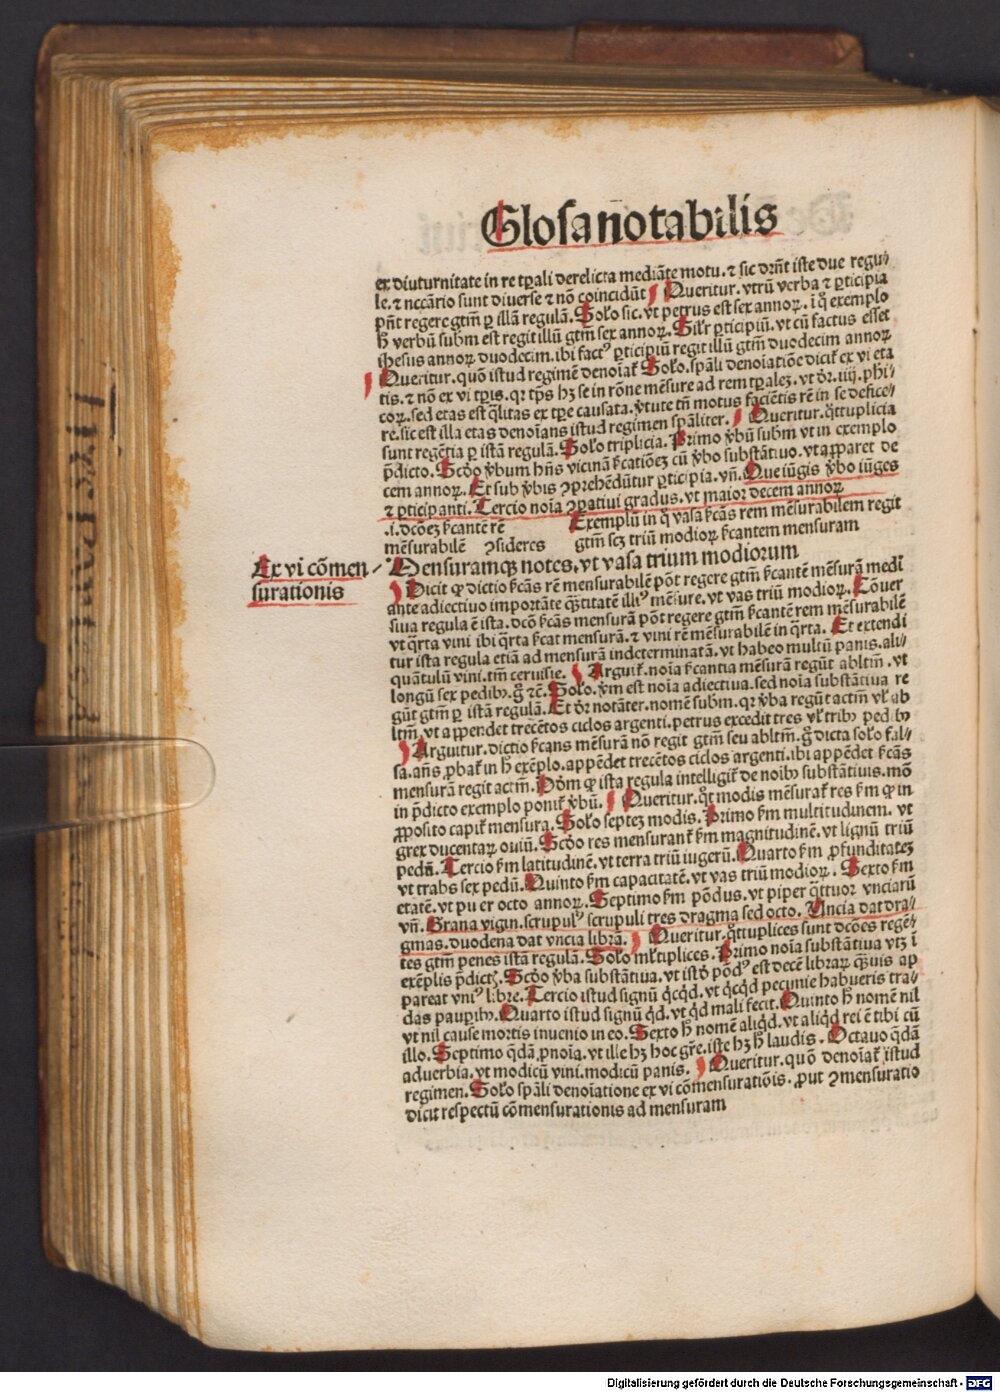 Glosa notabilis
ex diuturnitate in re tꝑali derelicta mediāte motu. ⁊ sic dr̄nt iste due regu⸗
le. ⁊ nccārio sunt diuerse ⁊ nō coincidūt Queritur. vtrū verba ⁊ ꝑticipia
pn̄t regere gtīm ꝑ illā regulā. Solo sic. vt petrus est sex annoꝝ. i q̊ exemplo
h̄ verbū subm est regit illū gtm̄ sex annoꝝ. Silr̄ ꝑticipiū. vt cū factus esset
ihesus annoꝝ duodecim. ibi factꝰ ꝑticipiū regit illū gtm̄ duodecim annoꝝ
Queritur. quō istud regimē denoīat̄ Solo. spāli denoīatiōe dicit̄ ex vi eta
tis. ⁊ nō ex vi tꝑis. qr tp̄s hꝫ se in rōne mēsure ad rem tꝑalez. vt dr̄. iiij. phi⸗
coꝝ. sed etas est q̄litas ex tꝑe causata. v̓tute tn̄ motus faciētis rē in se defice⸗
re. sic est illa etas denoīans istud regimen spāliter. Queritur. q̄ttuplicia
sunt regētia ꝑ istā regulā. Solo triplicia. Primo v̓bū subm vt in exemplo
p̄dicto. Scd̄o v̓bum hn̄s vicinā sc̄atiōeꝫ cū v̓bo substātiuo. vt apparet de
cem annoꝝ. Et sub v̓bis ꝯprehēdūtur ꝑticipia. vn̄. Que iūgis v̓bo iūges
⁊ ꝑticipanti. Tercio noīa ꝯꝑatiui gradus. vt maior decem annoꝝ
.i. dcōeꝫ sc̄antē rē Exemplū in q̊ vasa sc̄as rem mēsurabilem regit
mēsurabilē ꝯsideres gtm̄ scꝫ triū modioꝝ sc̄antem mensuram
Ex vi cōmen
surationis
Mensuramqꝫ notes. vt vasa trium modiorum
Dicit ꝙ dictio sc̄as rē mensurabilē pōt regere gtm̄ sc̄antē mēsurā medi
ante adiectiuo importāte q̄titatē illiꝰ mēsure. vt vas triū modioꝝ. Cōuer
siua regula ē ista. dcō sc̄as mensurā pōt regere gtm̄ sc̄antē rem mēsurabilē
vt q̄rta vini ibi q̄rta sc̄at mensurā. ⁊ vini rē mēsurabilē in q̄rta. Et extendi
tur ista regula etiā ad mensurā indeterminatā. vt habeo multū panis. ali⸗
quātulū vini. tm̄ ceruisie. Arguit̄. noīa sc̄antia mēsurā regūt abltm̄. vt
longū sex pedibꝫ. g̊ ⁊c̄. Solo. v̓m est noīa adiectiua. sed noīa substātiua re
gūt gtm̄ ꝑ istā regulā. Et dr̄ notāter. nomē subm. qr v̓ba regūt actm̄ vl̓ ab
ltm̄. vt appendet trecētos ciclos argenti. petrus excedit tres vl̓ tribꝫ pedibꝫ
Arguitur. dictio sc̄ans mēsurā nō regit gtm̄ seu abltm̄. g̊ dicta solo fal⸗
sa. an̄s ꝓbat̄ in h̄ exēplo. appēdet trecētos ciclos argenti. ibi appēdet sc̄as
mensurā regit actm̄. Dōm ꝙ ista regula intelligit̄ de noībꝫ substātiuis. mō
in p̄dicto exemplo ponit̄ v̓bū. Queritur. q̊t modis mēsurat̄ res sm̄ ꝙ in
ꝓposito capit̄ mensura. Solo septeꝫ modis. Primo sm̄ multitudinem. vt
grex ducentaꝝ ouiū. Scd̄o res mensurant̄ sm̄ magnitudinē. vt lignū triū
pedū. Tercio sm̄ latitudinē. vt terra triū iugerū. Quarto sm̄ ꝓfunditateꝫ
vt trabs sex pedū. Quinto sm̄ capacitatē. vt vas triū modioꝝ. Sexto sm̄
etatē. vt pu er octo annoꝝ. Septimo sm̄ pōdus. vt piper q̄ttuor vnciarū
vn̄. Grana vigin. scrupulꝰ scrupuli tres dragma sed octo. Uncia dat dra⸗
gmas. duodena dat vncia librā. Queritur. q̄ttuplices sunt dcōes regē⸗
tes gtm̄ penes istā regulā. Solo ml̓tiplices. Primo noīa substātiua vtꝫ ī
exēplis p̄dict̓. Scd̄o v̓ba substātiua. vt istd̓ pōdꝰ est decē libraꝝ q̄uis ap
pareat vniꝰ libre. Tercio istud signū q̇cqd̓. vt q̇cqd̓ pecunie habueris tra⸗
das pauꝑibꝫ. Quarto istud signū qd̓. vt qd̓ mali fecit. Quinto h̄ nomē nil
vt nil cause mortis inuenio in eo. Sexto h̄ nomē aliqd̓. vt aliqd̓ rei ē tibi cū
illo. Septimo q̄dā ꝓnoīa. vt ille hꝫ hoc gr̄e. iste hꝫ h̄ laudis. Octauo q̄dā
aduerbia. vt modicū vini. modicū panis. Queritur. quō denoīat̄ istud
regimen. Solo spāli denoīatione ex vi cōmensuratiōis. ꝓut ꝯmensuratio
dicit respectū cōmensurationis ad mensuram
Digitalisierung gefördert durch die Deutsche Forschungsgemeinschaft - DFG